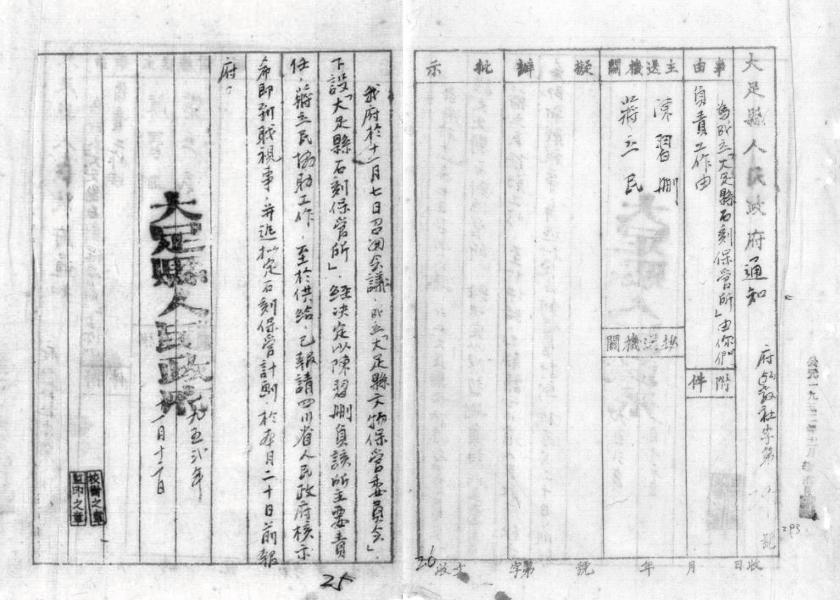 大足縣人民政府通知
府 教社字第 號
事由
為成立「大足縣石刻保管所」由你們
負責工作由
附件
主送機關
陳習刪
蔣立民
抄送機關
擬辦
批示
收 日 月 年 號 第 字 收
293
26
我府於十一月七日召開會議，成立「大足縣文物保管委員會」，
下設「大足縣石刻保管所」，經決定以陳習刪負該所主要責
任，蔣立民協助工作，至於供給，已報請四川省人民政府核示
希即到職視事，并迅擬定石刻保管計劃於本月二十日前報
府。
大足縣人民政府
一九五弍年
十一月十二日
校對之章
監印之章
25